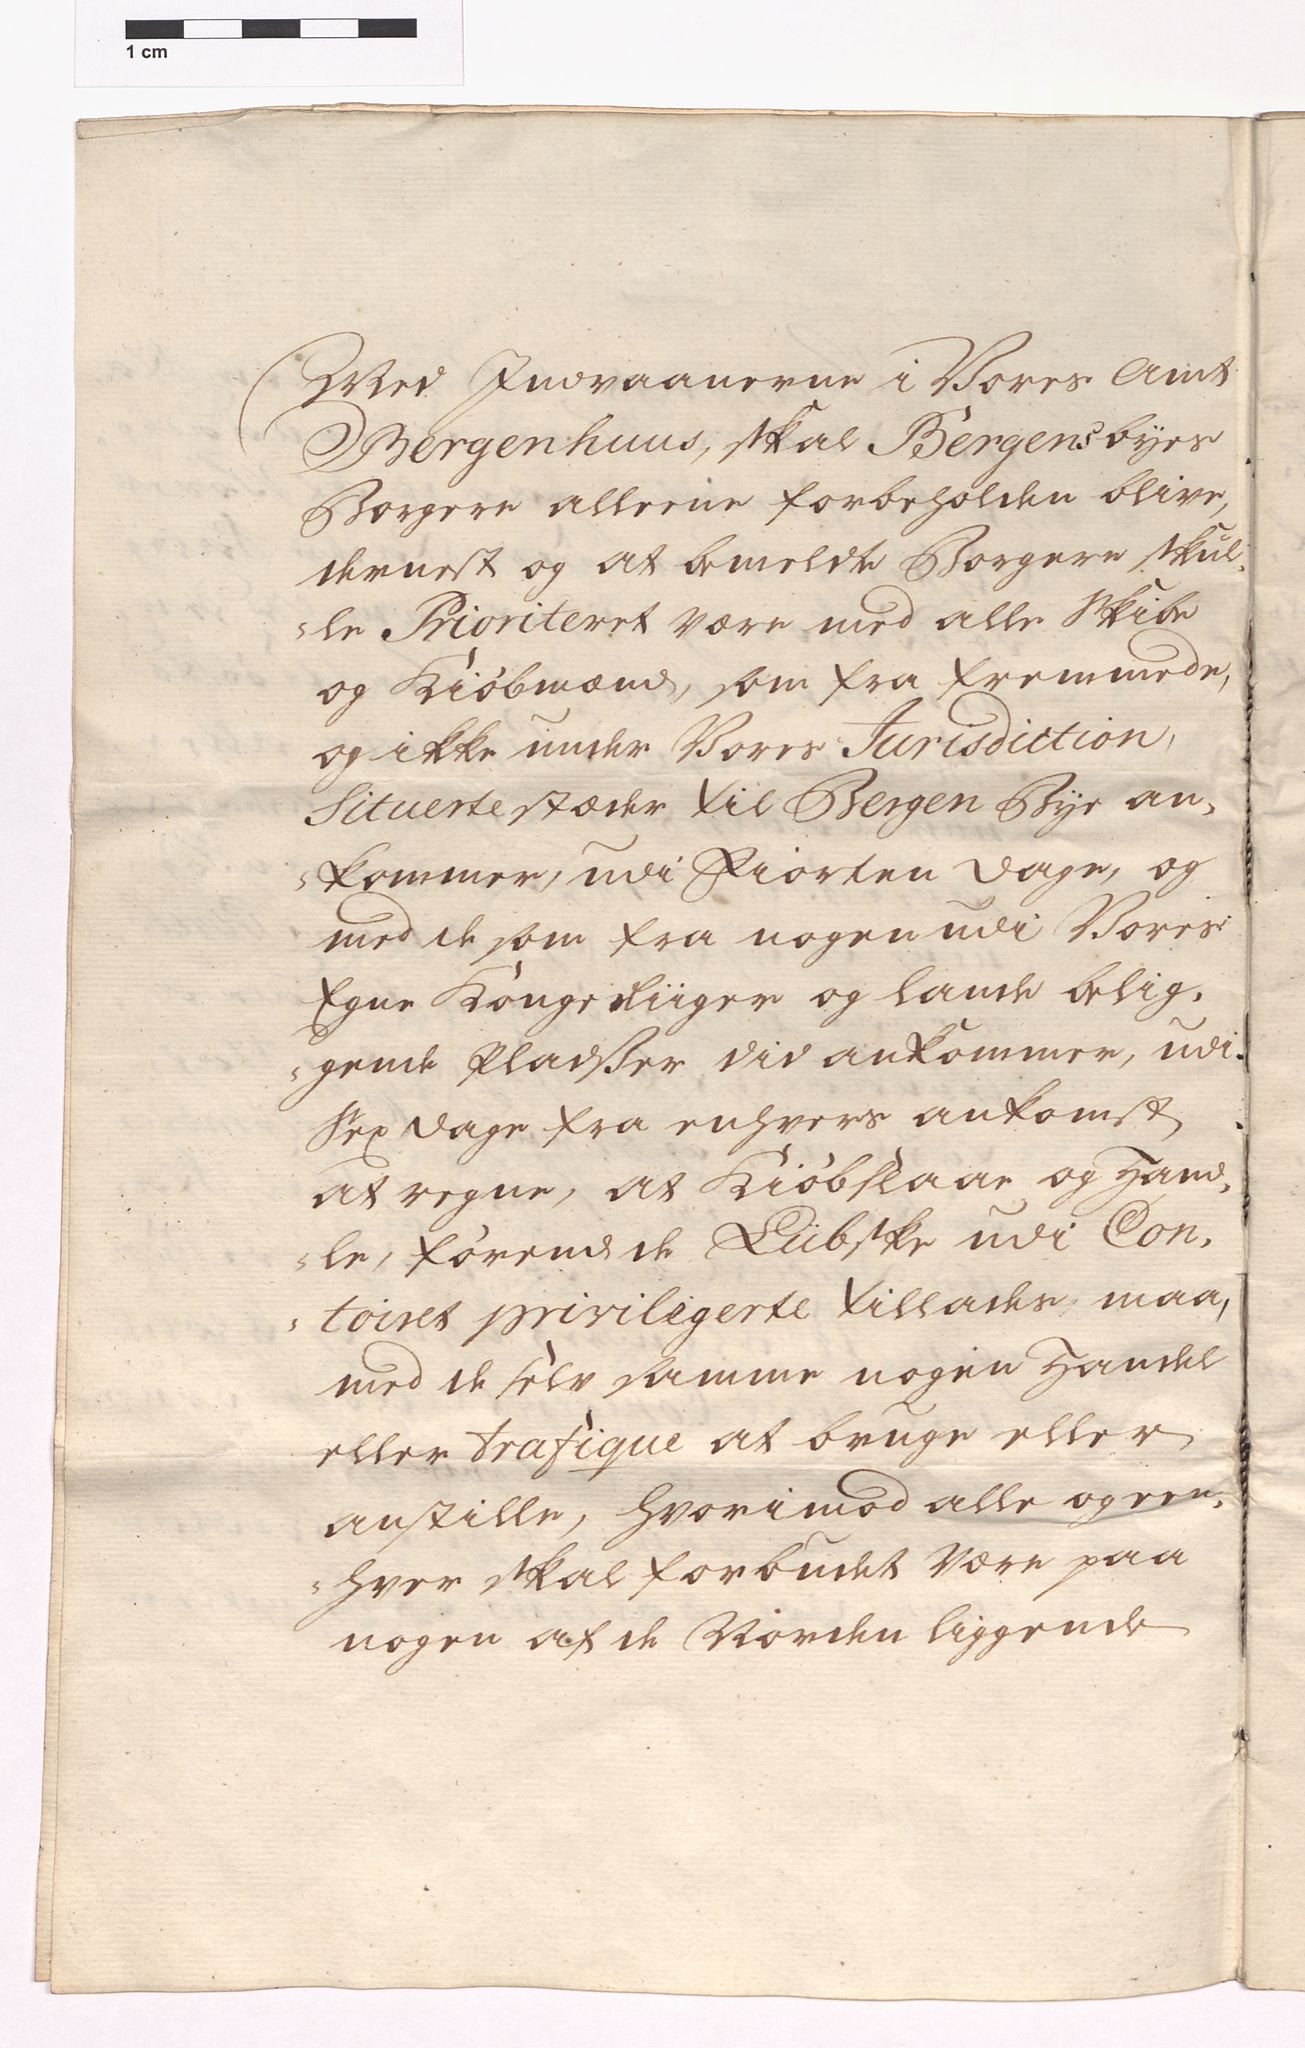 1 cm
Med Indvaanerne i Vores Amt
Bergenhuus, skal Bergens byes
Borgere alleene forbeholden blive,
dernest og at bemeldte Borgere skul-
-le Prioriteret være med alle Skibe
og Kiöbmænd, som fra fremmede,
og ikke under Vores Jurisdiction,
Situerte stæder til Bergen Bye an-
-kommer, udi Fiorten Dage, og
med de som fra nogen udi Vores
Egne Kongeriiger og lande belig-
-gende Pladsser did ankommer, udi
Sex Dage fra enhvers ankomst
at regne, at Kiöbslaae og Hand-
-le, förend de Lübske udi Con-
-toiret priviligerte tillades maa,
med de selv samme nogen Handel
eller trafique at bruge eller
anstille, hvorimod alle og een-
-hver skal forbudet være paa
nogen af de Norden liggende